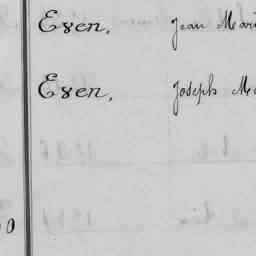 Even, Jean Mari
Even, Joseph Ma
0